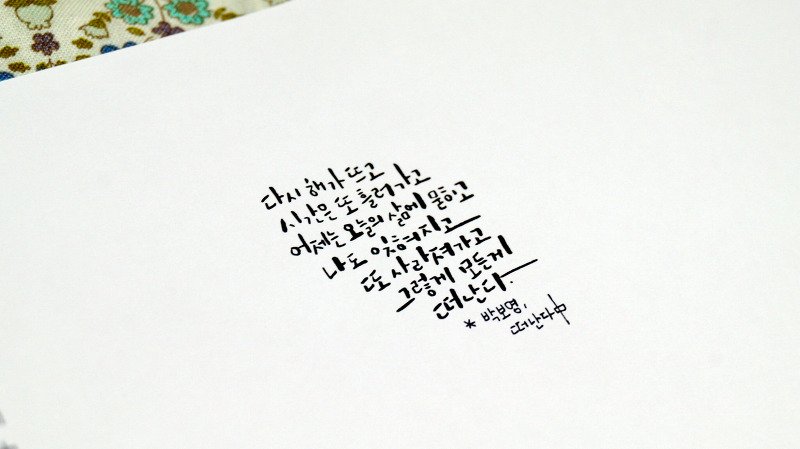 다시 해가 뜨고
시간은 또 흘러가고
어제는 오늘의 삶에 묻히고
나도 잊혀지고
또 사라져가고
그렇게 모든게
떠난다.
* 박보영,
떠난다中